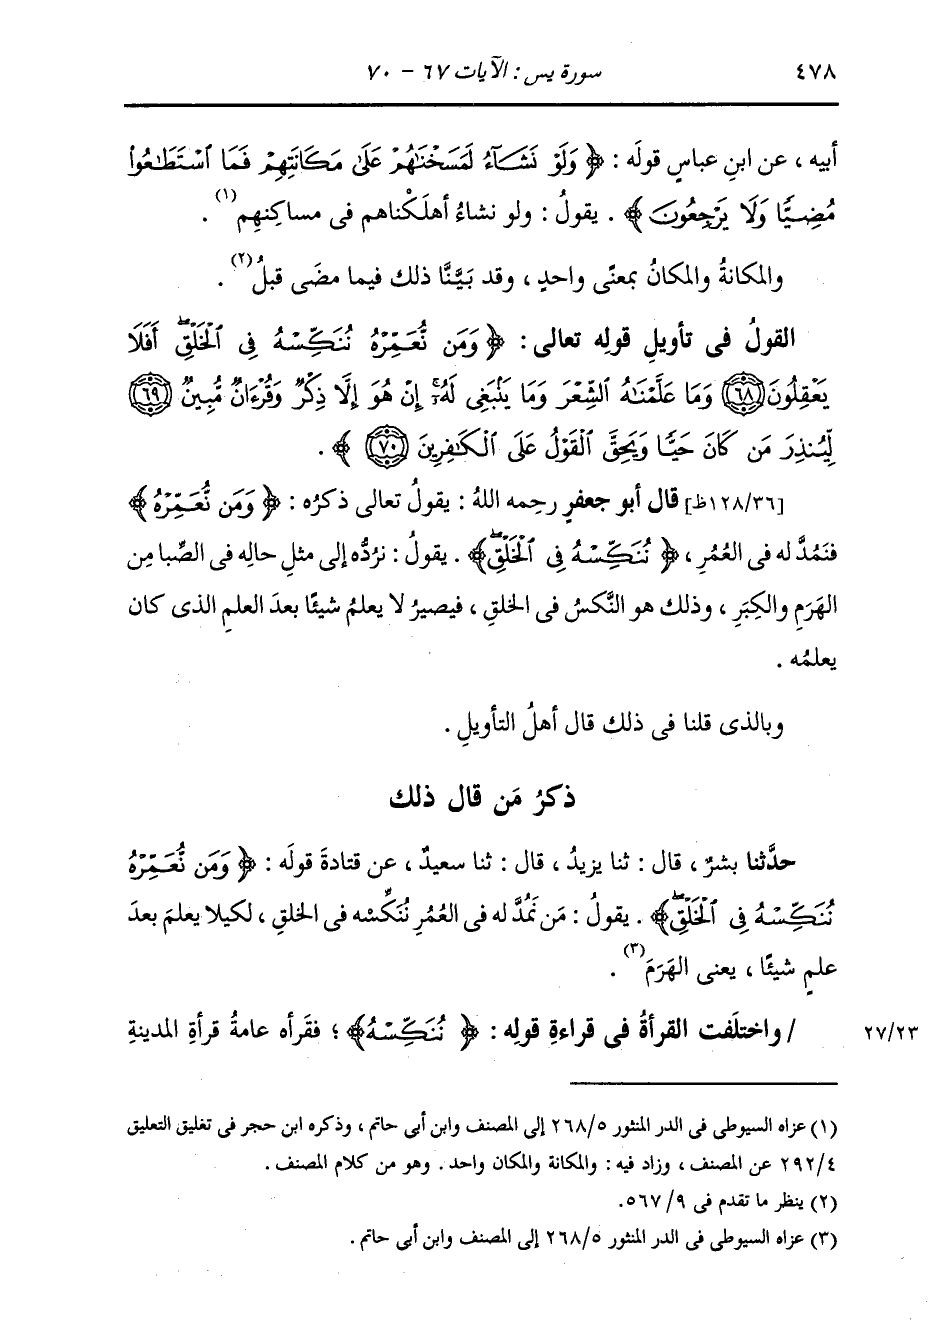 ٤٧٨ سورة يس : الآيات ٦٧ - ٧٠
أبيه ، عن ابنِ عباسٍ قولَه : ﴿ وَلَوْ نَشَآءُ لَمَسَخْنَٰهُمْ عَلَىٰ مَكَانَتِهِمْ فَمَا ٱسْتَطَٰعُوا۟
مُضِيًّا وَلَا يَرْجِعُونَ ﴾ . يقولُ : ولو نشاءُ أهلَكْناهم فى مساكنِهم(١) .
والمكانةُ والمكانُ بمعنًى واحدٍ ، وقد بَيَّنَّا ذلك فيما مضَى قبلُ(٢) .
القولُ فى تأويلِ قولِه تعالى : ﴿ وَمَن نُّعَمِّرْهُ نُنَكِّسْهُ فِى ٱلْخَلْقِ ۖ أَفَلَا
يَعْقِلُونَ ﴿٦٨﴾ وَمَا عَلَّمْنَٰهُ ٱلشِّعْرَ وَمَا يَنۢبَغِى لَهُۥٓ ۚ إِنْ هُوَ إِلَّا ذِكْرٌ وَقُرْءَانٌ مُّبِينٌ ﴿٦٩﴾
لِّيُنذِرَ مَن كَانَ حَيًّا وَيَحِقَّ ٱلْقَوْلُ عَلَى ٱلْكَٰفِرِينَ ﴿٧٠﴾ ﴾ .
[١٢٨/٣٦ظ] قال أبو جعفرٍ رحِمه اللهُ : يقولُ تعالى ذكرُه : ﴿ وَمَن نُّعَمِّرْهُ ﴾
فنَمُدَّ له فى العُمُرِ ، ﴿ نُنَكِّسْهُ فِى ٱلْخَلْقِ ۖ ﴾ . يقولُ : نرُدُّه إلى مثلِ حالِه فى الصِّبا مِن
الهَرَمِ والكِبَرِ ، وذلك هو النَّكسُ فى الخلقِ ، فيصيرُ لا يعلمُ شيئًا بعدَ العلمِ الذى كان
يعلمُه .
وبالذى قلنا فى ذلك قال أهلُ التأويلِ .
ذكرُ مَن قال ذلك
حدَّثنا بشرٌ ، قال : ثنا يزيدُ ، قال : ثنا سعيدٌ ، عن قتادةَ قولَه : ﴿ وَمَن نُّعَمِّرْهُ
نُنَكِّسْهُ فِى ٱلْخَلْقِ ۖ ﴾ . يقولُ : مَن نَمُدَّ له فى العُمُرِ نُنَكِّسْه فى الخلقِ ، لكيلا يعلمَ بعدَ
علمٍ شيئًا ، يعنى الهَرَمَ(٣) .
٢٧/٢٣ / واختلَفت القرأةُ فى قراءةِ قولِه : ﴿ نُنَكِّسْهُ ﴾ ؛ فقرَأه عامةُ قرأةِ المدينةِ
(١) عزاه السيوطى فى الدر المنثور ٢٦٨/٥ إلى المصنف وابن أبى حاتم ، وذكره ابن حجر فى تغليق التعليق
٢٩٢/٤ عن المصنف ، وزاد فيه : والمكانة والمكان واحد . وهو من كلام المصنف .
(٢) ينظر ما تقدم فى ٥٦٧/٩.
(٣) عزاه السيوطى فى الدر المنثور ٢٦٨/٥ إلى المصنف وابن أبى حاتم .